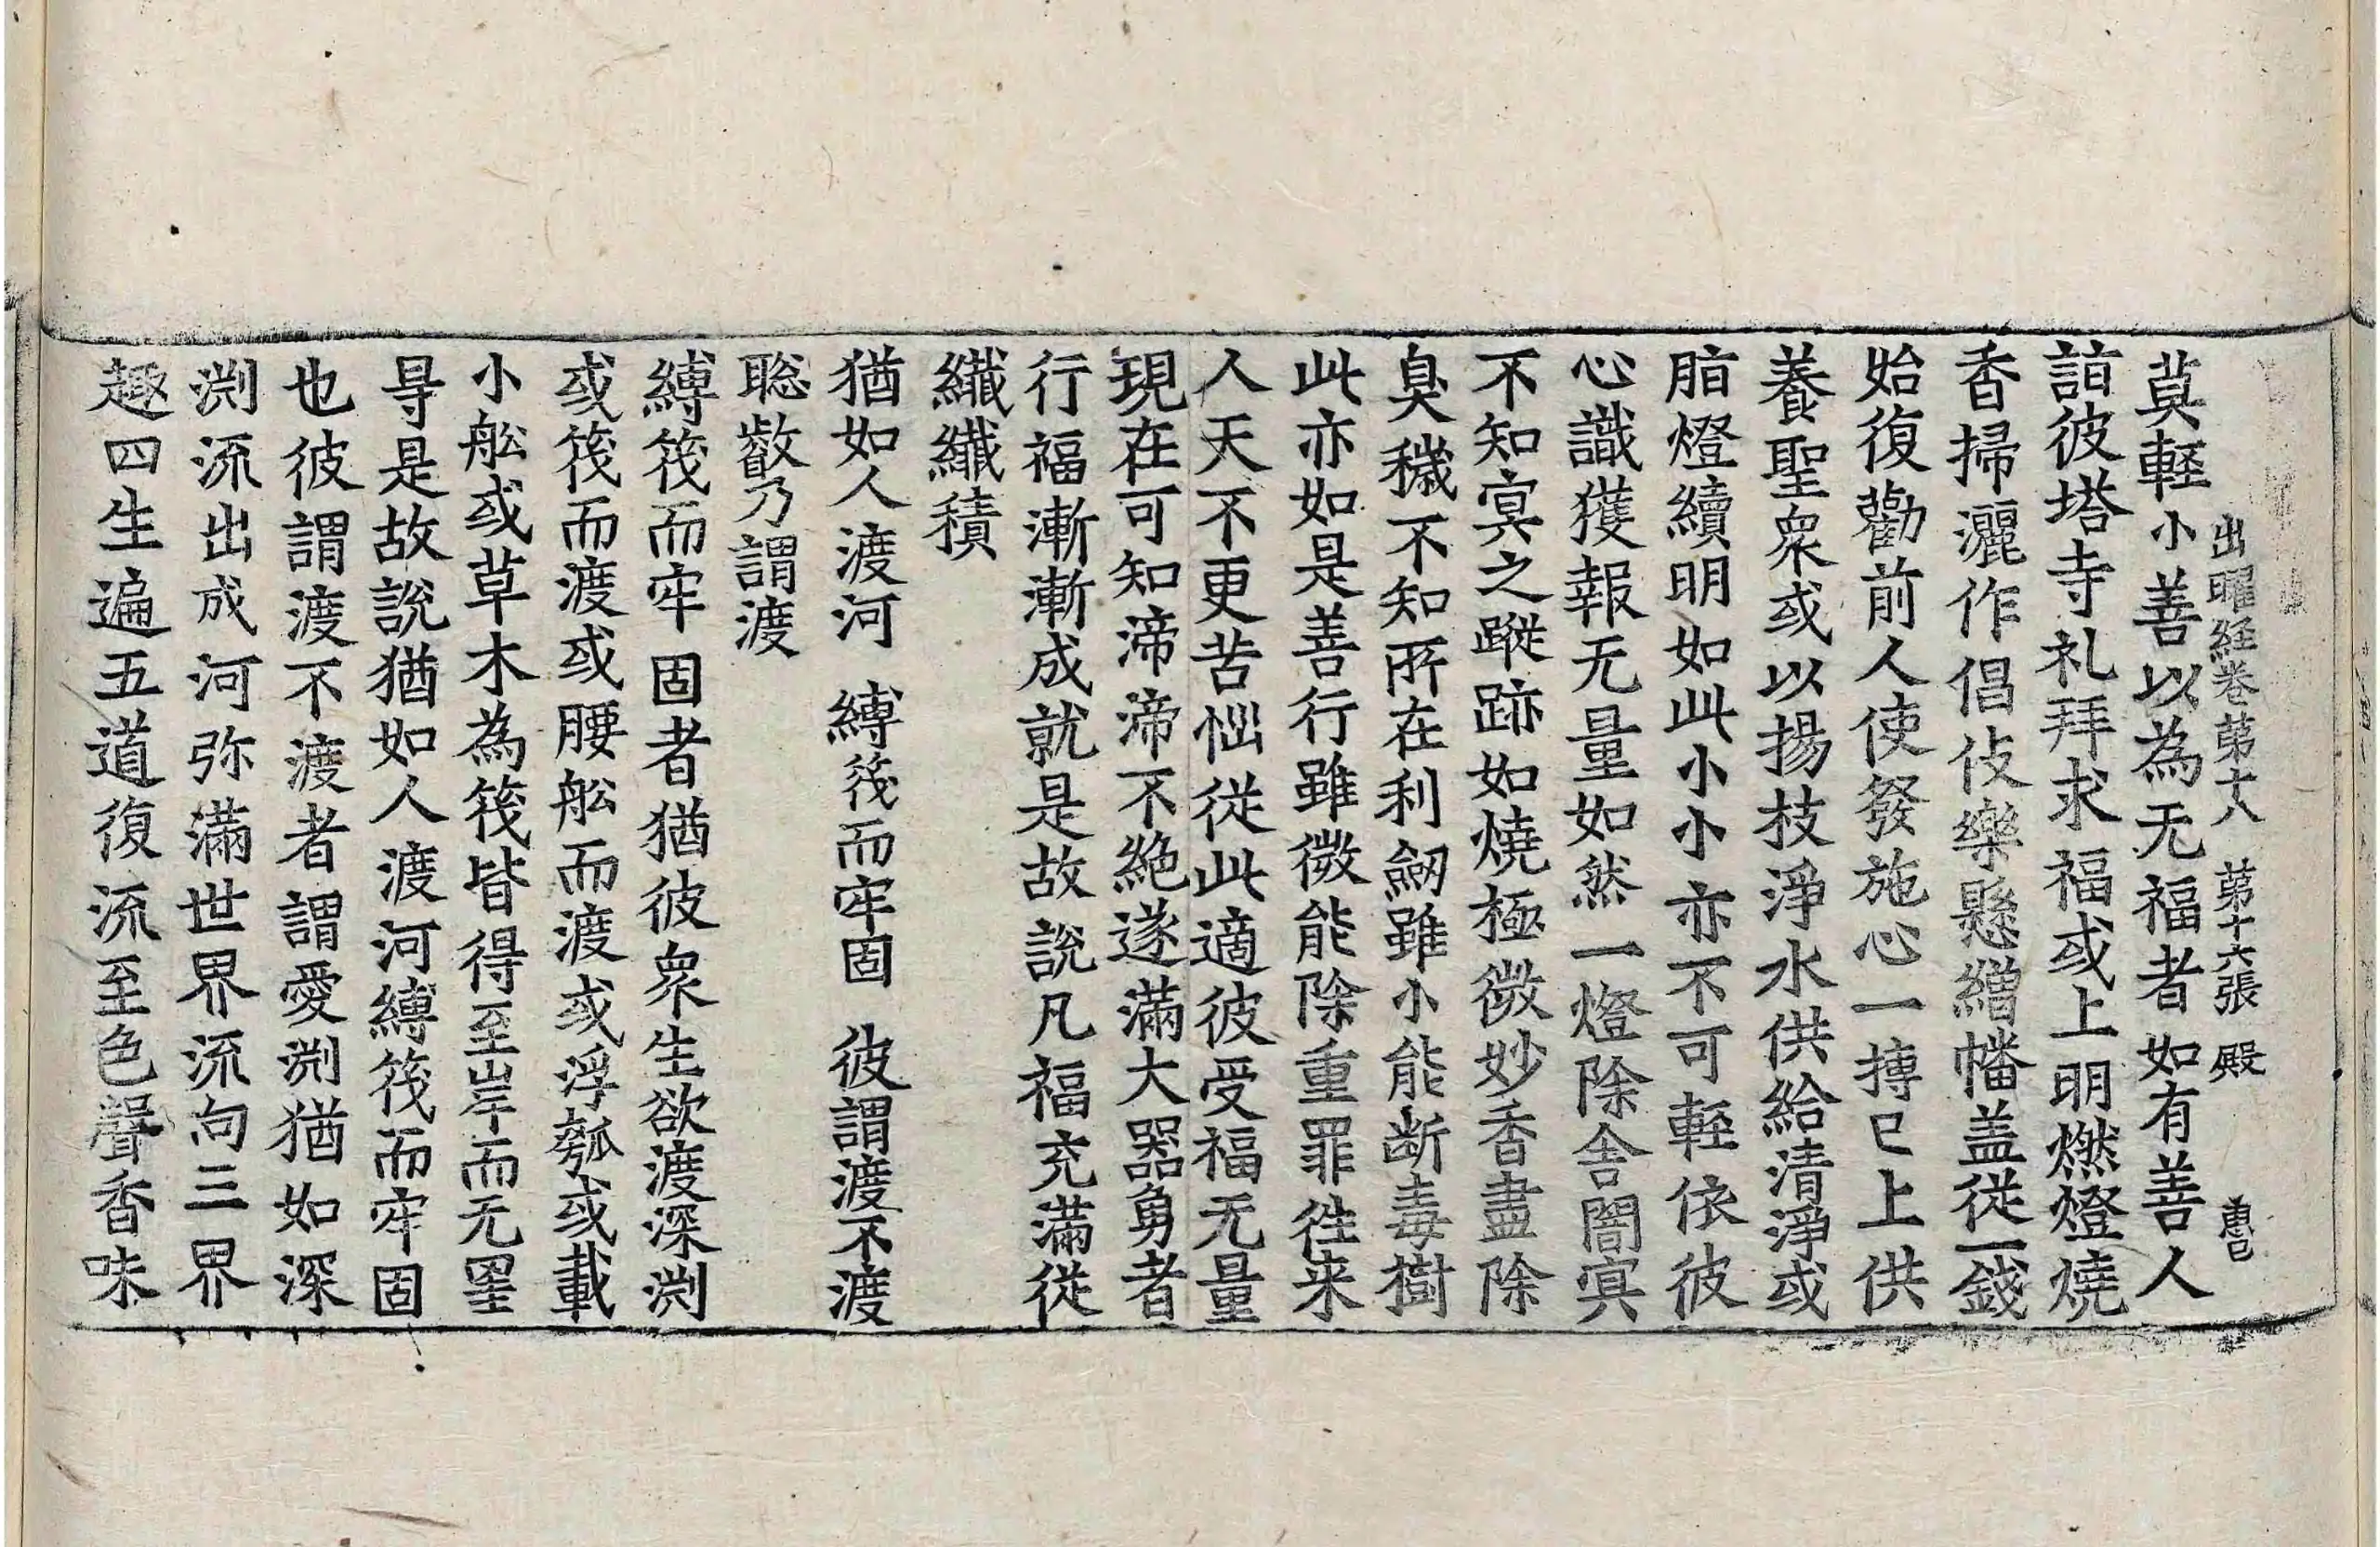 出曜経卷苐十八　苐十六張　殿
莫輕小善以為无福者如有善人
詣彼塔寺礼拜求福或上明燃燈燒
香掃灑作倡伎樂懸繒幡盖従一錢
始復勸前人使發施心一摶已上供
養聖衆或以揚枝淨水供給清淨或
脂燈續明如此小小亦不可輕依彼
心識獲報无量如然一燈除舎闇冥
不知冥之蹤跡如燒極微妙香盡除
臭穢不知所在利劒雖小能断毒樹
此亦如是善行雖微能除重罪往来
人天不更苦惱従此適彼受福无量
現在可知渧渧不絶遂滿大器勇者
行福漸漸成就是故說凡福充滿従
纖纖積
猶如人渡河　縛筏而牢固　彼謂渡不渡
聡叡乃謂渡
縛筏而牢固者猶彼衆生欲渡深渕
或筏而渡或腰舩而渡或浮瓠或載
小舩或草木為筏皆得至岸而无罣
㝵是故說猶如人渡河縛筏而牢固
也彼謂渡不渡者謂愛渕猶如深
渕流出成河弥滿世界流向三界
趣四生遍五道復流至色聲香味